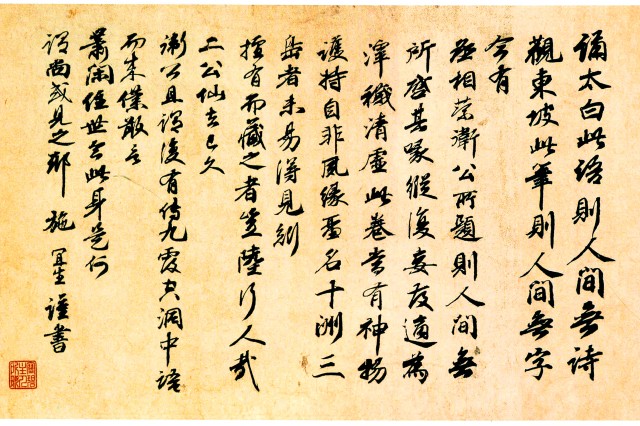 誦太白此語則人間無詩
觀東坡此筆則人間無字
今有
丞相蔡衛公所題則人間無
所啓其喙縱復妄發適為
滓穢清虛此卷當有神物
護持自非夙緣名十洲三
島者未易得見矧
擅有而藏之者豈陸行人哉
二公仙去已久
衛公且謂復有傳九霞空洞中語
而来僕散言
蕭閑住世今此身是何
謂尚或見之耶 施宜生謹書